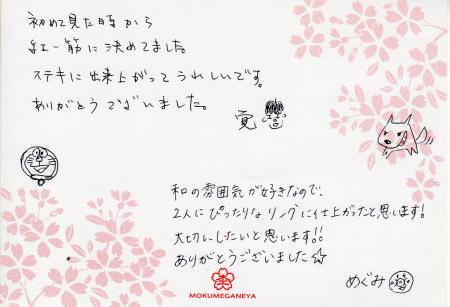 初めて見た時から
紅一筋に決めてました。
ステキに出来上がってうれしいです。
ありがとうございました。
覚
和の雰囲気が好きなので、
2人にぴったりなリングに仕上がったと思います!
大切にしたいと思います!!
ありがとうございました☆
めぐみ
MOKUMEGANEYA